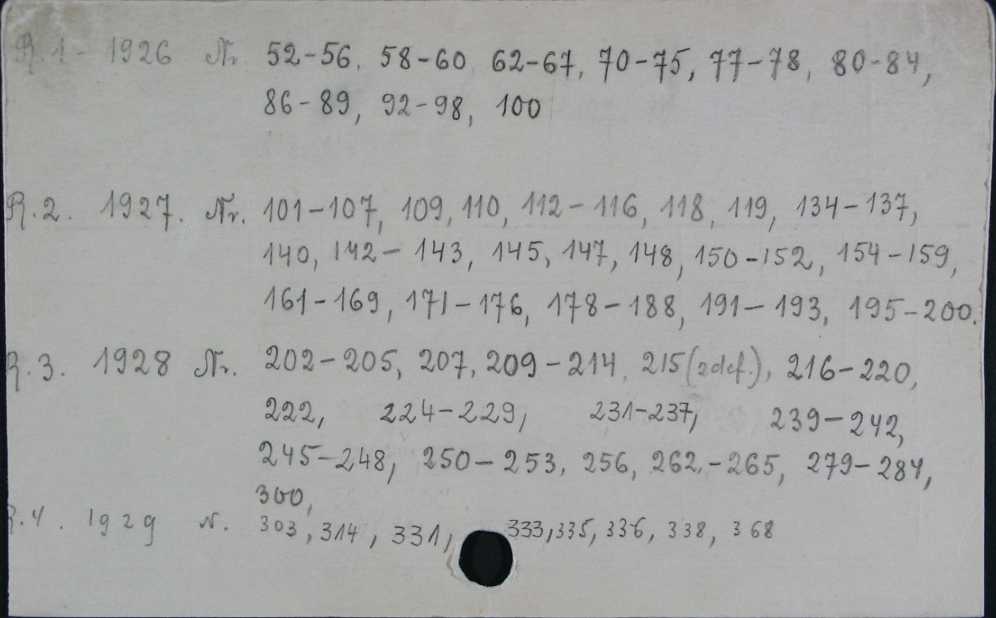 R. 1 - 1926 Nr. 52-56, 58-60, 62-67, 70-75, 77-78, 80-84,
86-89, 92-98, 100
R. 2. 1927. Nr. 101-107, 109, 110, 112-116, 118, 119, 134-137,
140, 142-143, 145, 147, 148, 150-152, 154-159,
161-169, 171-176, 178-188, 191-193, 195-200.
R. 3. 1928 Nr. 202-205, 207, 209-214, 215 (zdef.), 216-220,
222, 224-229, 231-237, 239-242,
245-248, 250-253, 256, 262-265, 279-284,
300,
R. 4. 1929 N. 303, 314, 331, 333, 335, 336, 338, 368